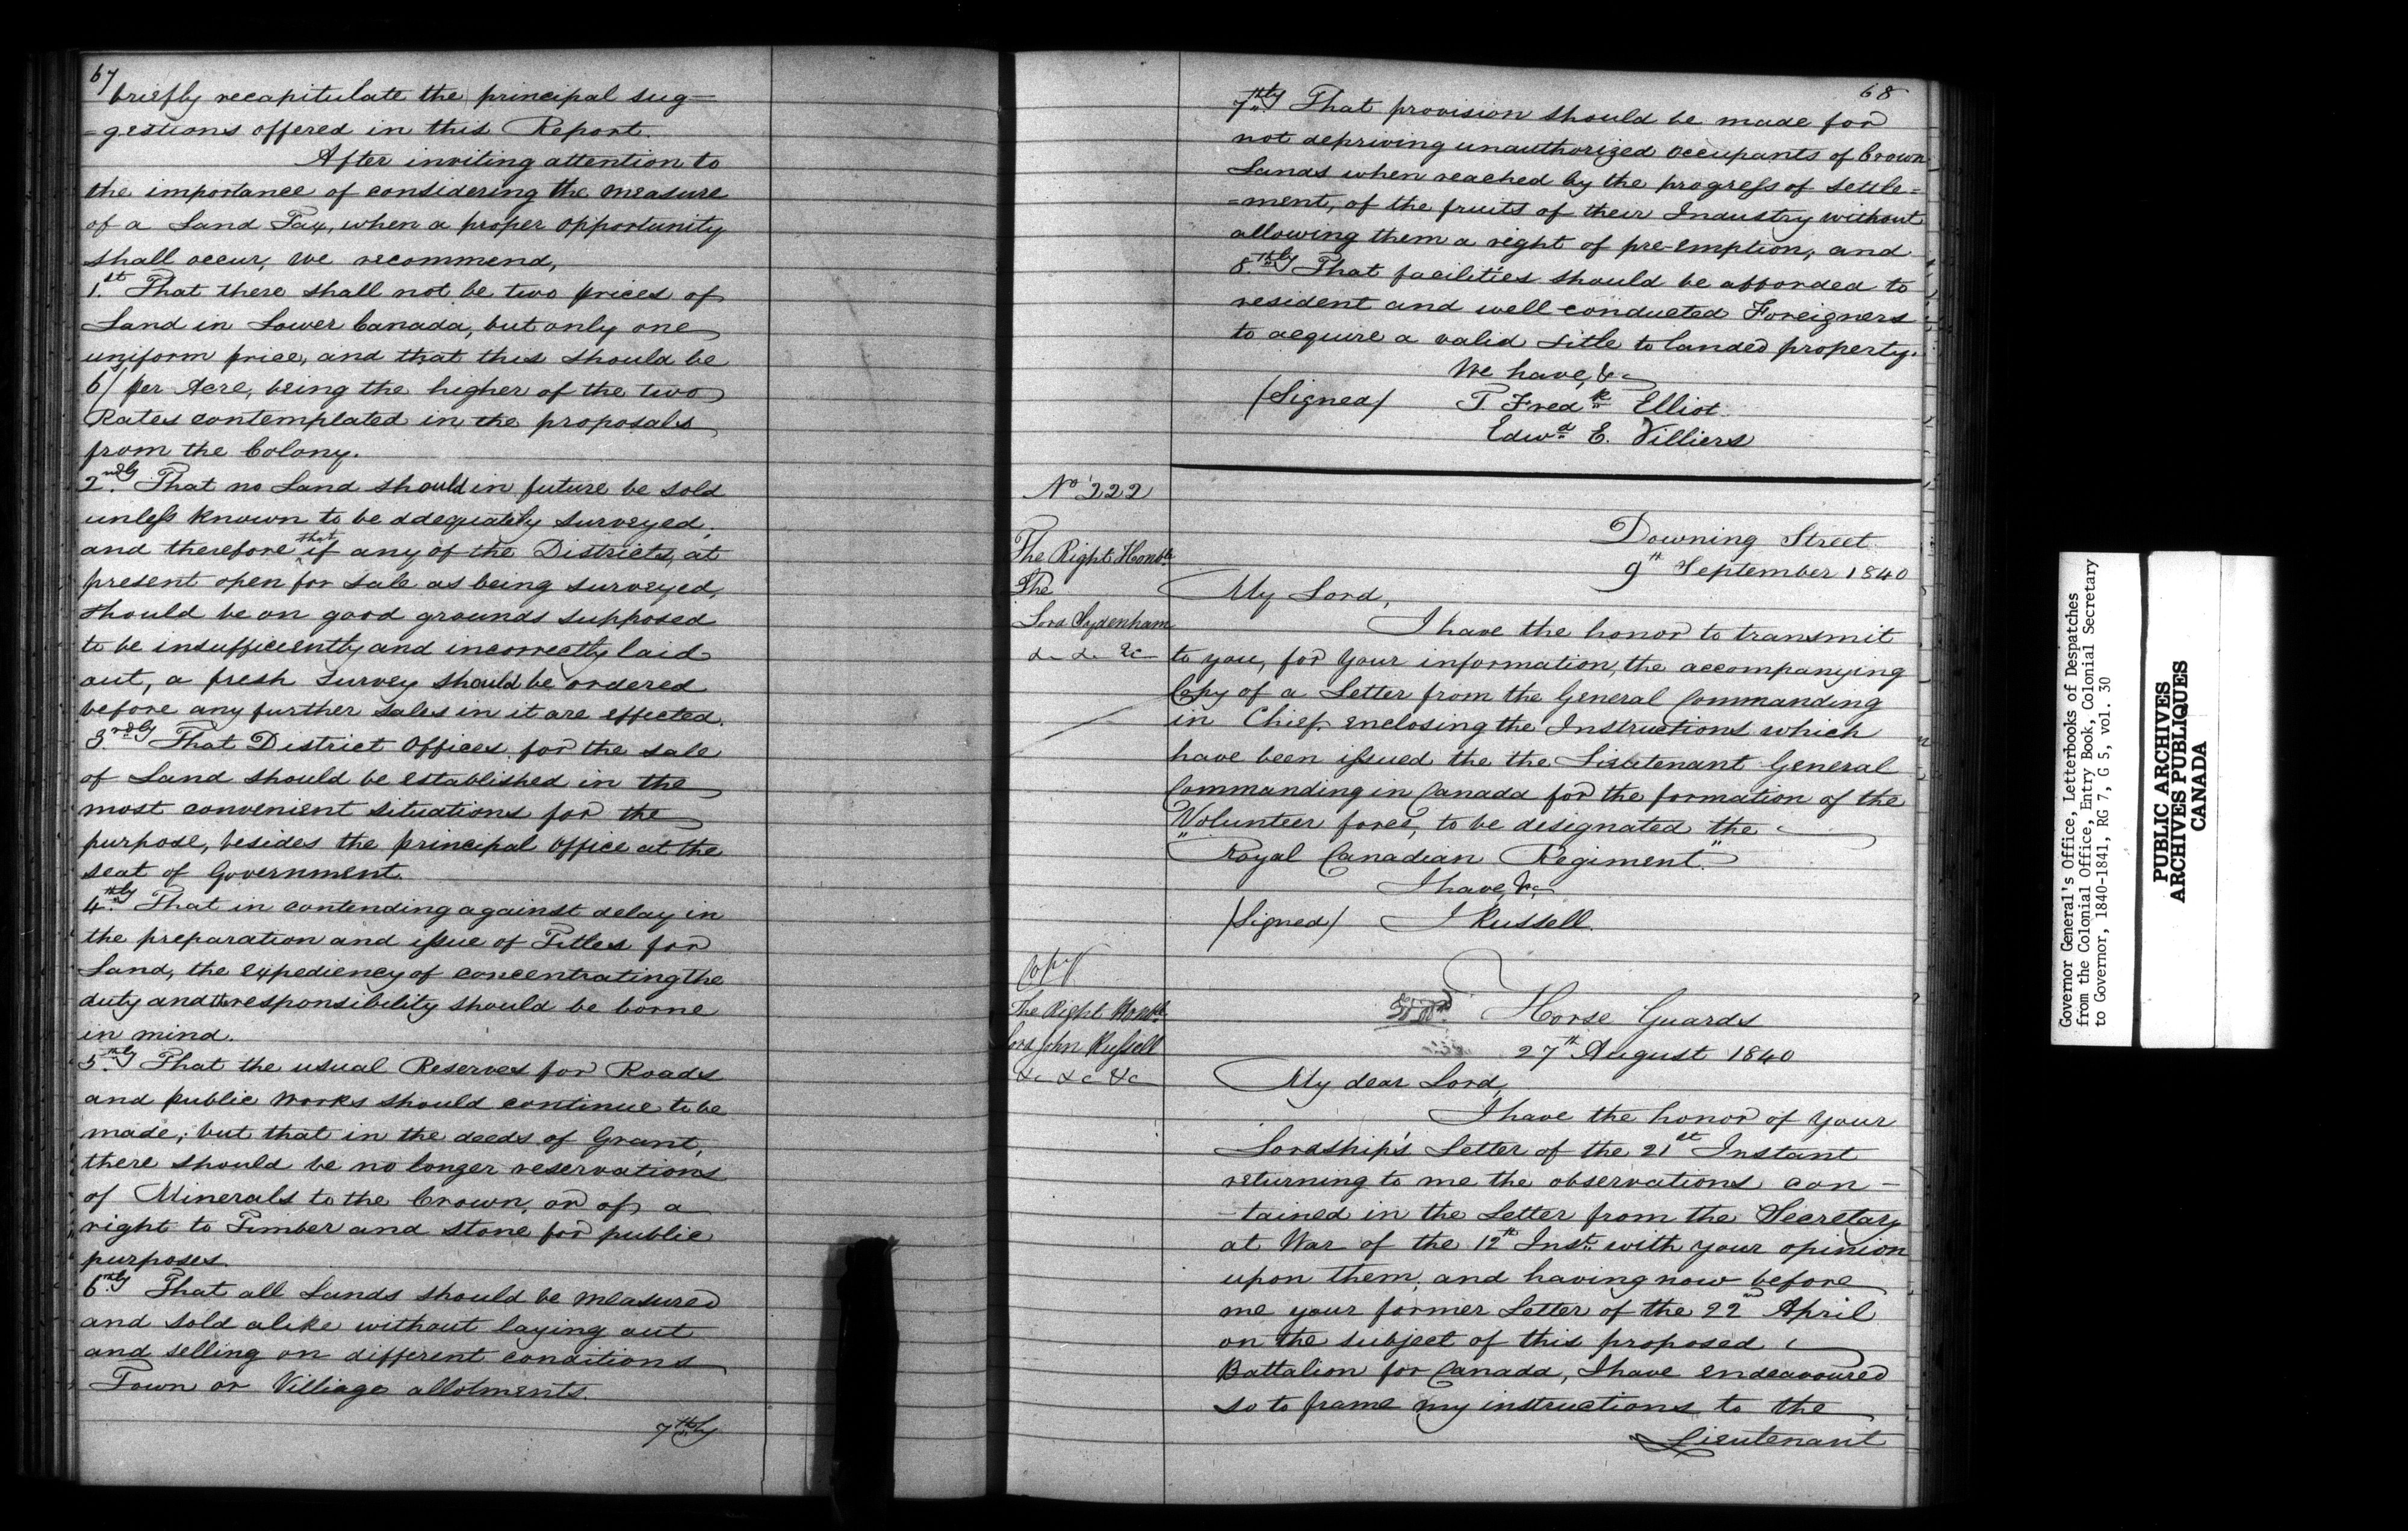 67
briefly recapitulate the principal sug=
=gestions offered in this Report.
After inviting attention to
the importance of considering the measure
of a Land Tax, when a proper opportunity
shall occur, we recommend,
1.st That there shall not be two prices of
Land in Lower Canada, but only one
uniform price, and that this should be
6/ per Acre, being the higher of the two
Rates contemplated in the proposals
from the Colony.
2.ndly That no Land should in future be sold
unless known to be adequately surveyed,
and therefore that if any of the Districts, at
present open for sale as being surveyed,
should be on good grounds supposed
to be insufficiently and incorrectly laid
out, a fresh survey should be ordered
before any further sales in it are effected.
3.rdly That District Offices for the sale
of Land should be established in the
most convenient situations for the
purpose, besides the principal Office at the
seat of Government.
4.thly That in contending against delay in
the preparation and issue of Titles for
Land, the expediency of concentrating the
duty and the responsibility should be borne
in mind.
5.thly That the usual Reserves for Roads
and public works should continue to be
made; but that in the deeds of Grant,
there should be no longer reservations
of Minerals to the Crown, or of a
right to Timber and stone for public
purposes.
6.thly That all Lands should be measured
and sold alike without laying out
and selling on different conditions
Town or Village allotments.
7thly
68
7.thly That provision should be made for
not depriving unauthorized occupants of Crown
Lands when reached by the progress of settle=
=ment, of the fruits of their Industry without
allowing them a right of pre-emption, and
8.thly That facilities should be afforded to
resident and well conducted Foreigners
to acquire a valid title to landed property.
We have, &c
/Signed/ T Fredk Elliot
Edwd E. Villiers
No 222
Downing Street
9th September 1840
The Right Honble
The
Lord Sydenham
&c &c &c
My Lord,
I have the honor to transmit
to you, for your information, the accompanying
Copy of a Letter from the General Commanding
in Chief enclosing the Instructions which
have been issued the the Lieutenant General
Commanding in Canada for the formation of the
Volunteer force, to be designated the
"Royal Canadian Regiment."
I have, &c
/Signed/ J Russell.
Copy
The Right Honble
Lord John Russell
&c &c &c
Horse Guards
27th August 1840
My dear Lord,
I have the honor of your
Lordship's Letter of the 21st Instant
returning to me the observations con-
-tained in the Letter from the Secretary
at War of the 12th Inst. with your opinion
upon them, and having now before
me your former Letter of the 22nd April
on the subject of this proposed
Battalion for Canada, I have endeavoured
so to frame my instructions to the
Lieutenant
Governor General's Office, Letterbooks of Despatches
from the Colonial Office, Entry Book, Colonial Secretary
to Governor, 1840-1841, RG 7, G 5, vol. 30
PUBLIC ARCHIVES
ARCHIVES PUBLIQUES
CANADA